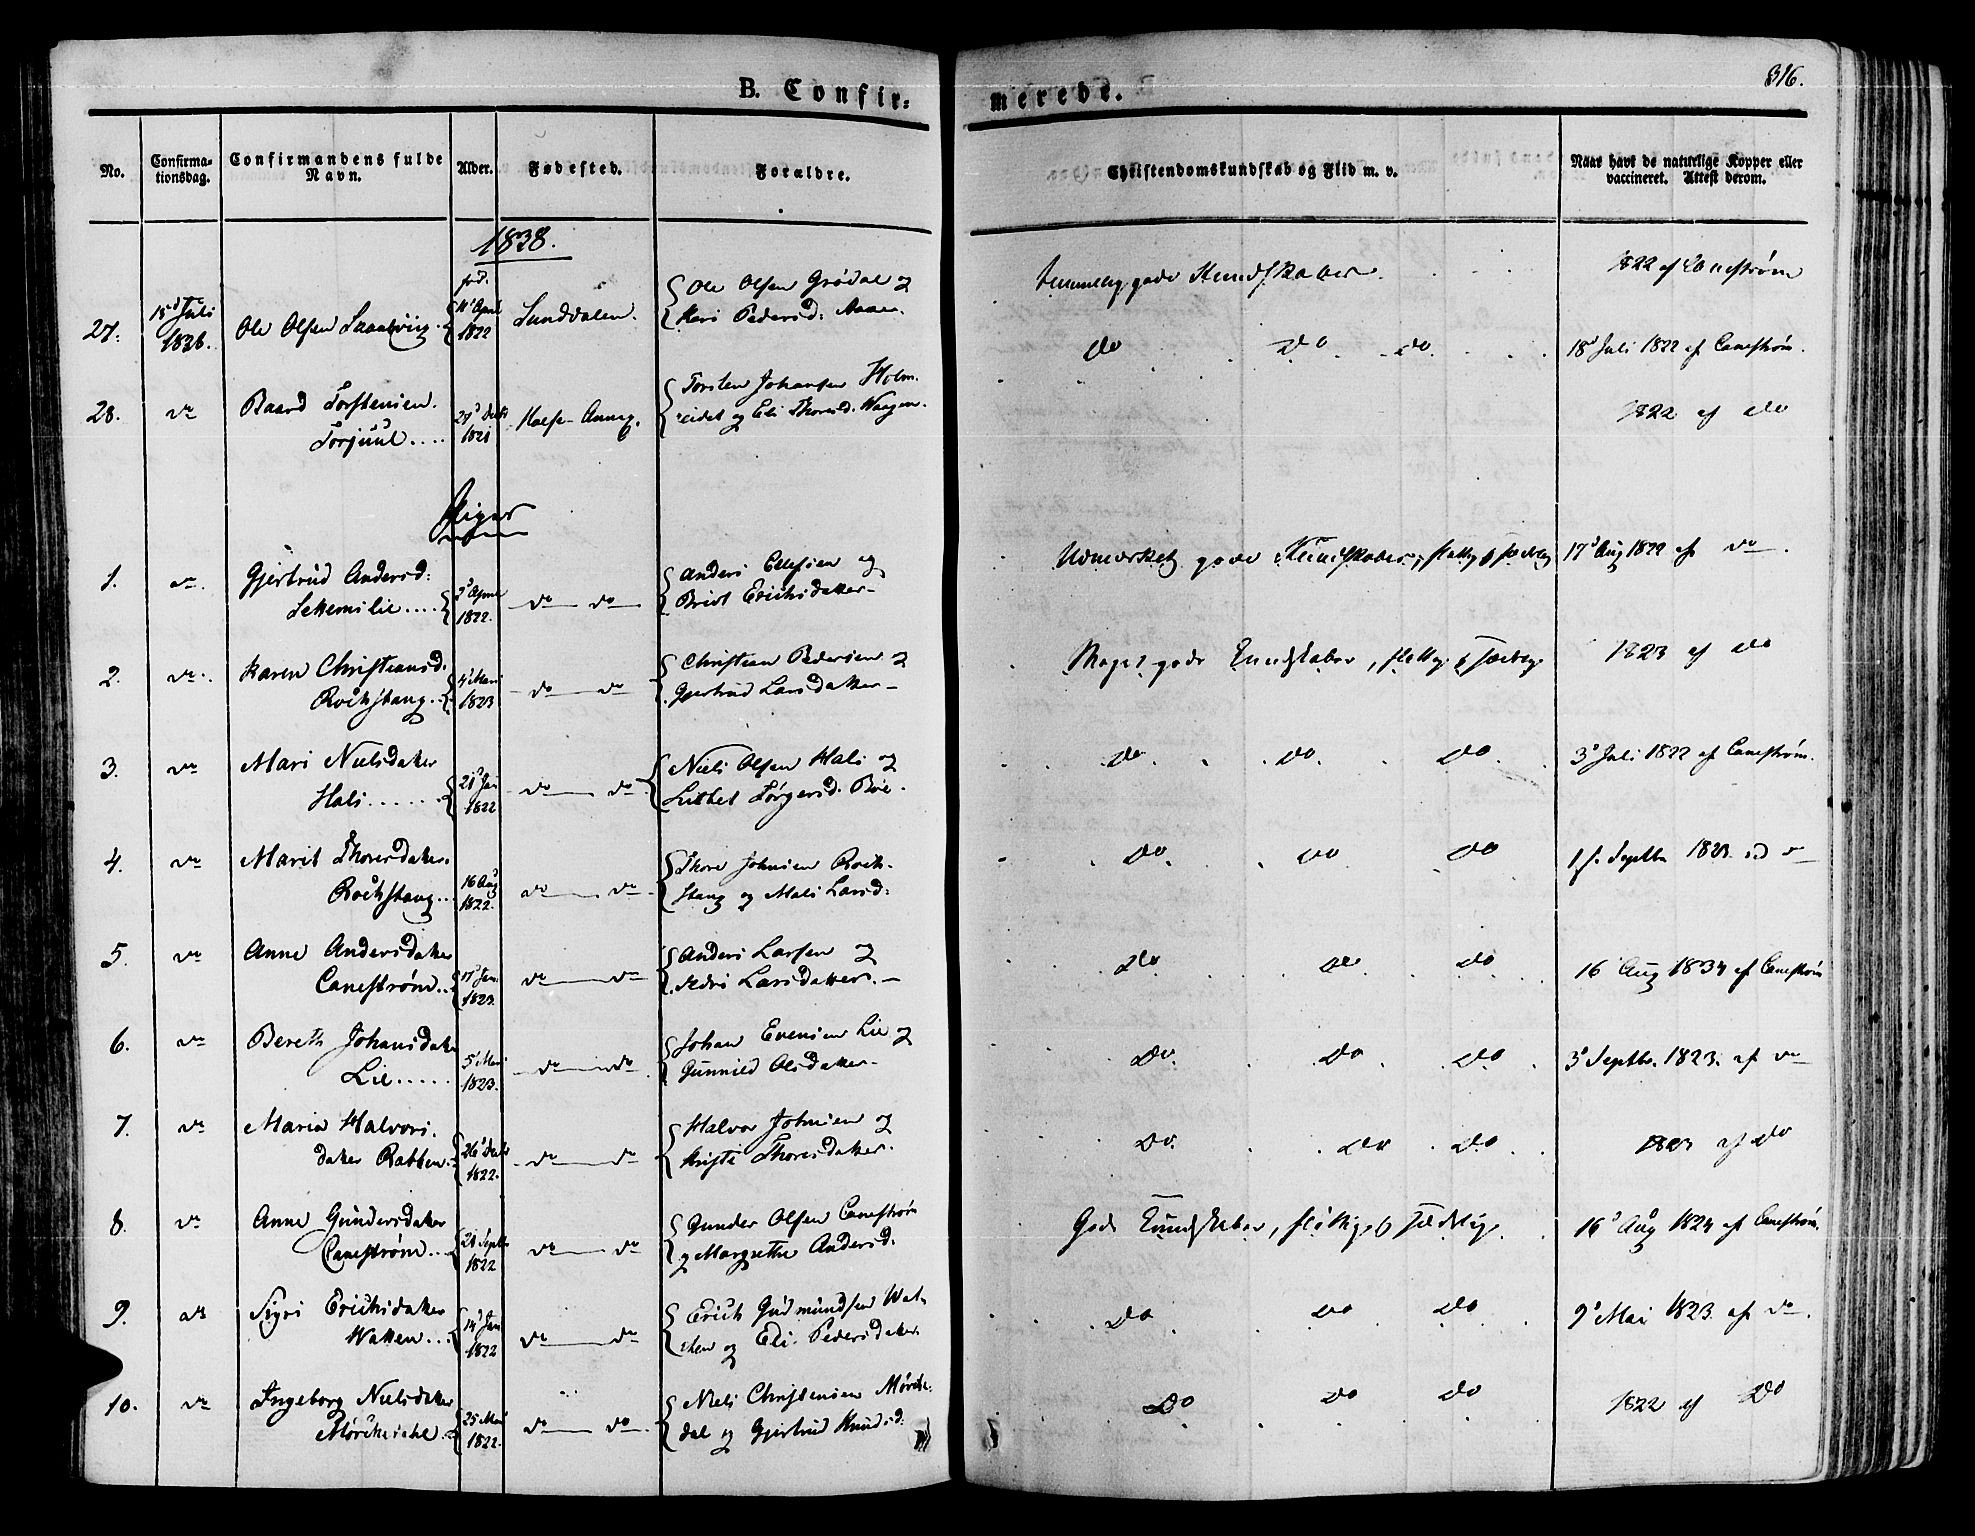 B. Confir:
merede.
316.
No.
Confirma-
tionsdag.
Confirmandens fulde
Navn.
Alder.
Fødested.
Forældre.
Christendomskundskab og Flid m. v.
Naar havt de naturlige Kopper eller
vaccineret. Attest derom.
1838.
fød.
27.
15d Juli
1838.
Ole Olsen
April
1822
Sunddalen.
Ole Olsen Grødal og
Kari Pedersd:
temmelig gode Kundskaber
1822 af
do do do
18d Juli 1822 af Canestrøm.
28.
do
Baard Torstensen
Torjuul....
27d Decbr
1821
Torsten Johansen Holm-
eidet og Eli Thoresd. Waagen.
1822 af do
Piger
1.
do
Gjertrud Andersd:
April
1822.
do do
Anders Ellefsen og
Brit Erichsdatter
Udmærket gode Kundskaber, flittig og sædelig
17d Aug 1822 af do.
2.
do
Karen Christiansd.
Rockstang..
Mari
1823
do do
Christian Pedersen og
Gjertrud Larsdatter
Meget gode Kundskaber, flittig og sædelig
1823 af do
3.
do
Mari Nielsdatter
Hals......
21d Jan
1822
do do
Niels Olsen Hals og
Lisbet Børgersd. Böe.
do do do
3d Juli 1822 af Canestrøm.
4.
do
Marit Thoresdatter
Rockstang..
16 Aug
1822.
do do
Thore Johnsen Rock-
stang og Mali Larsd:
do do do
1ste Septbr 1823. af do
5.
do
Anne Andersdatter
Canestrøm..
17d Jan.
1823.
do do
Anders Larsen og
Larsdatter.
do do do
16 Aug 1834 af Canestrøm
6.
do
Bereth Johansdatter
Lie.....
5d Mari
1823.
do do
Johan Evensen Lie og
Gunnild Olsdatter
do do do
3d Septbr. 1823. af do
7.
do
Maria Halvors-
datter Ratten.
26d Decbr
1822.
do do
Halvor Johnsen og
Thoresdatter.
do do do
1823 af do
8.
do
Anne Gundersdatter
Canestrøm...
Septbr
1822
do do
Gunder Olsen Canestrøm
og Margrethe Andersd.
Gode Kundskaber, flittig og sædelig.
16d Aug 1824 af Canestrøm.
9.
do
Sigri Erichsdatter
Watten...
14d Jan
1822
do do
Erich Gudmundsen Wat-
ten og Eli Pedersdatter
do do do
9d Mai 1823 af do.
10.
do
Ingeborg Nielsdatter
25 Mari
1822.
do do
Niels Christensen Mörch-
dal og Gjertrud Knudsd:
do do do
1822 af do